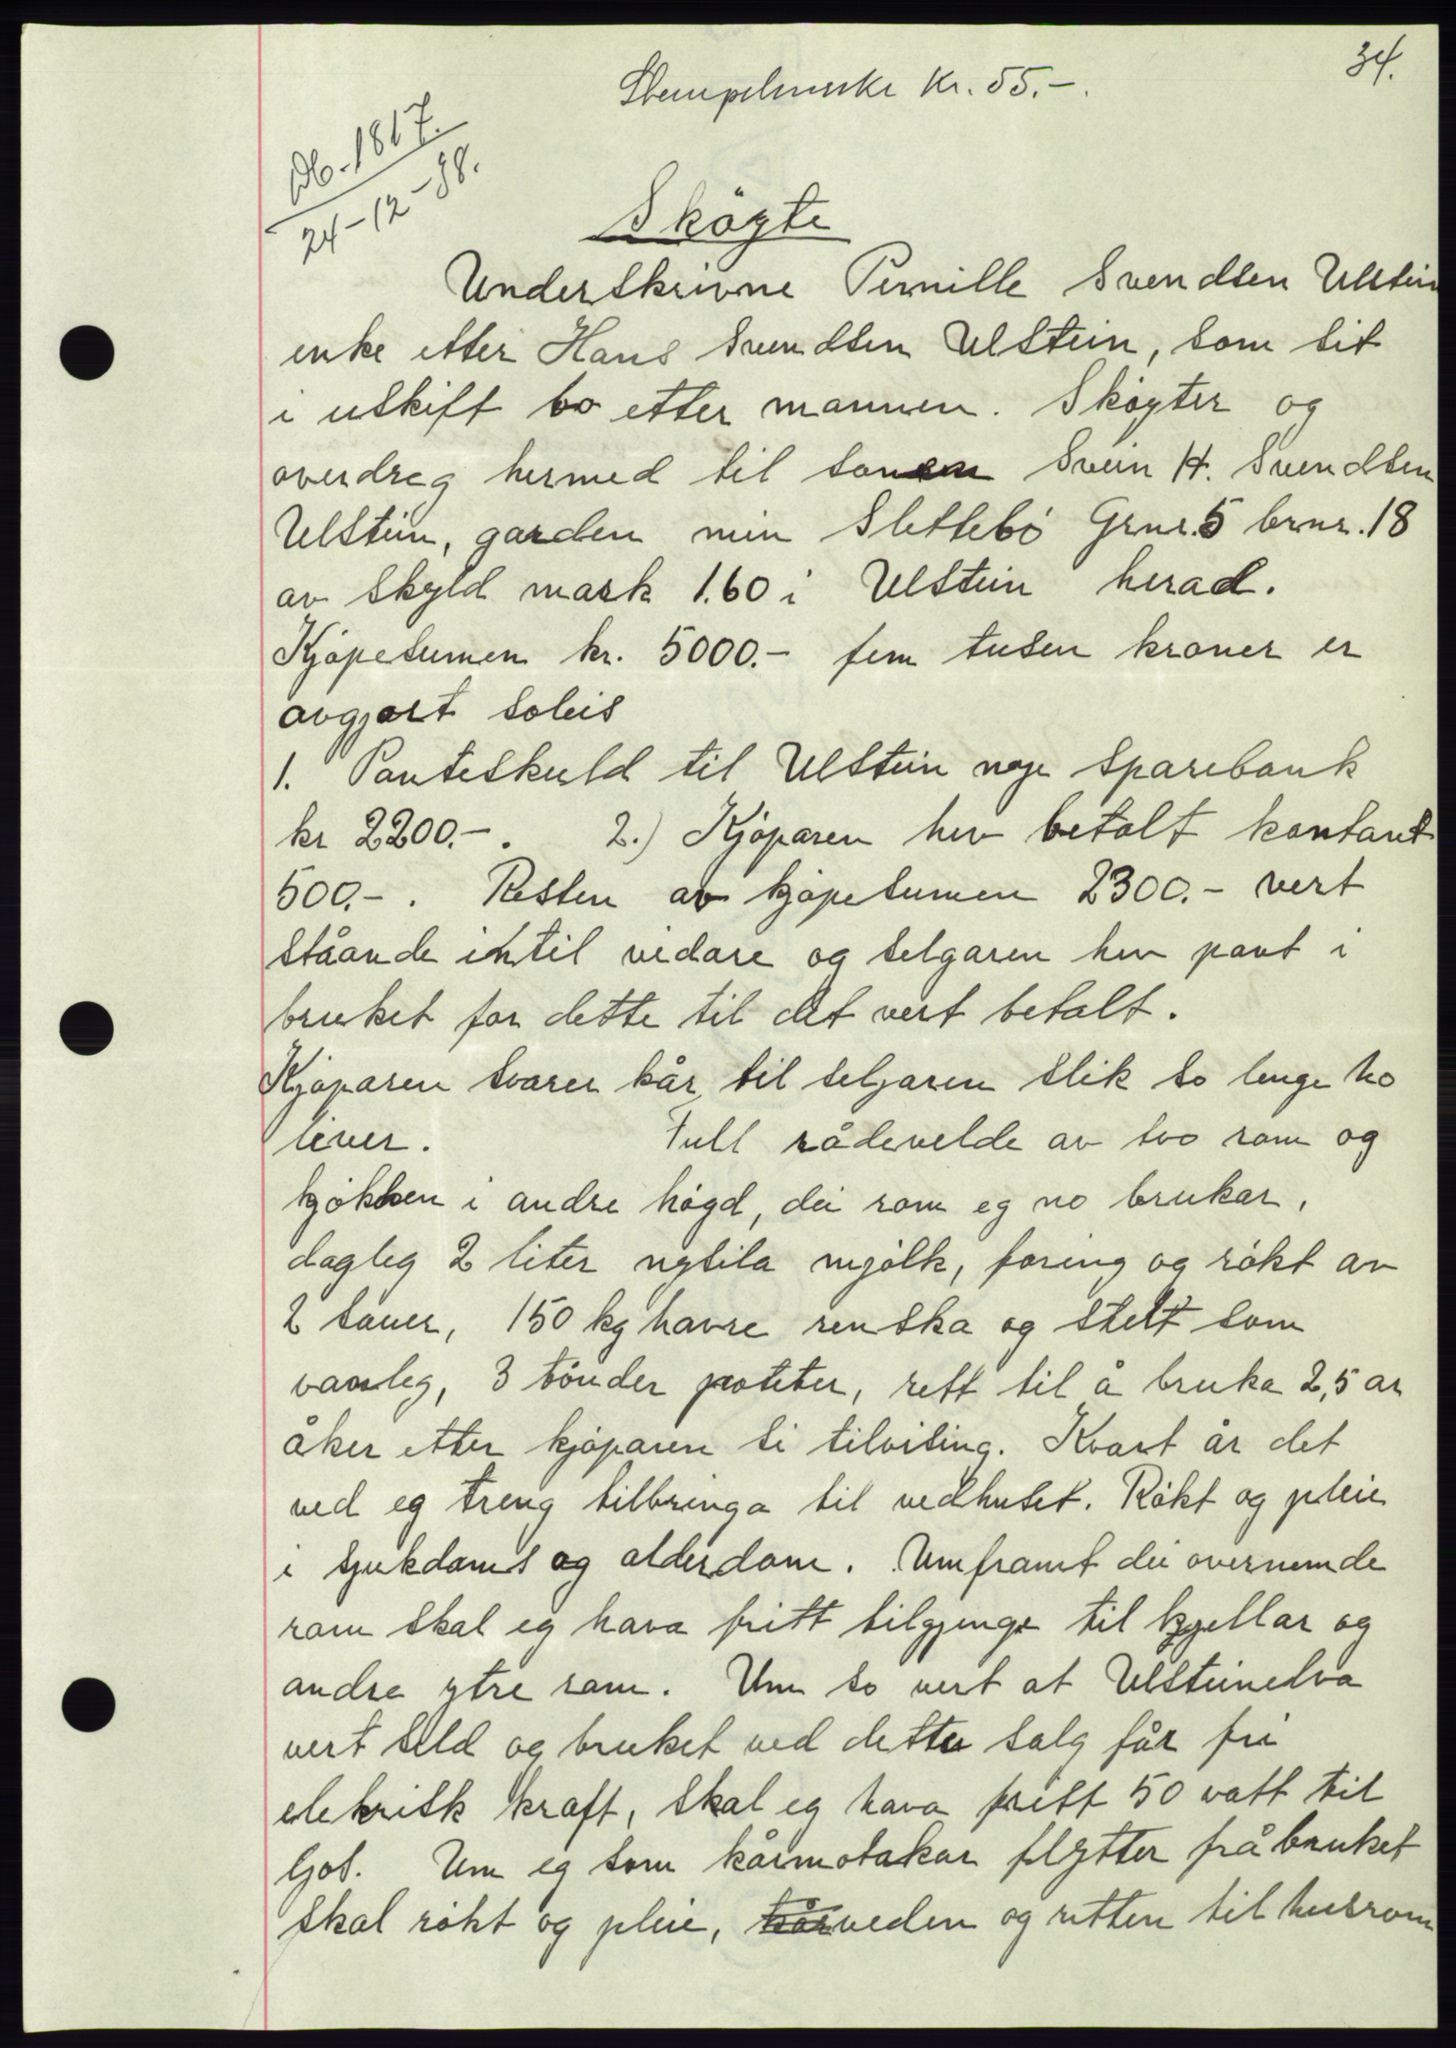 34.
Stempelmerke kr. 55.-.
Db. 1817.
24-12-38.
Skøyte
Underskrivne Pernille Svendsen Ulstein
enke etter Hans Svendsen Ulstein, som sit
i uskift bo etter mannen. Skøyter og
overdreg hermed til sonen Svein H. Svendsen
Ulstein, garden min Slettebö Grnr. 5 brnr. 18
av skyld mark 1.60 i Ulstein herad.
Kjøpesumen kr. 5000.- fem tusen kroner er
avgjort soleis
1. Panteskuld til Ulstein nye sparebank
kr 2200.-. 2.) Kjøparen hev betalt kontant
500.-. Resten av kjøpesumen 2300.- vert
ståande intil vidare og selgaren hev pant i
bruket for dette til det vert betalt.
Kjøparen svarer kår til seljaren slik so lenge ho
liver. Full rådevelde av tvo rom og
kjøkken i andre høgd, dei rom eg no brukar,
dagleg 2 liter nysila mjølk, foring og røkt av
2 sauer, 150 kg havre renska og stelt som
vanleg, 3 tönder poteter, rett til å bruka 2,5 ar
åker etter kjøparen si tilvising. Kvart år det
ved eg treng tilbringa til vedhuset. Røkt og pleie
i sjukdoms og alderdom. Umframt dei overnemde
rom skal eg hava fritt tilgjenge til kjellar og
andre ytre rom. Um so vert at Ulsteinelva
vert seld og bruket ved dette salg får fri
elekrisk kraft, skal eg hava fritt 50 watt til
ljos. Um eg som kårmotakar flytter frå bruket
skal røkt og pleie, kårveden og retten til husrom